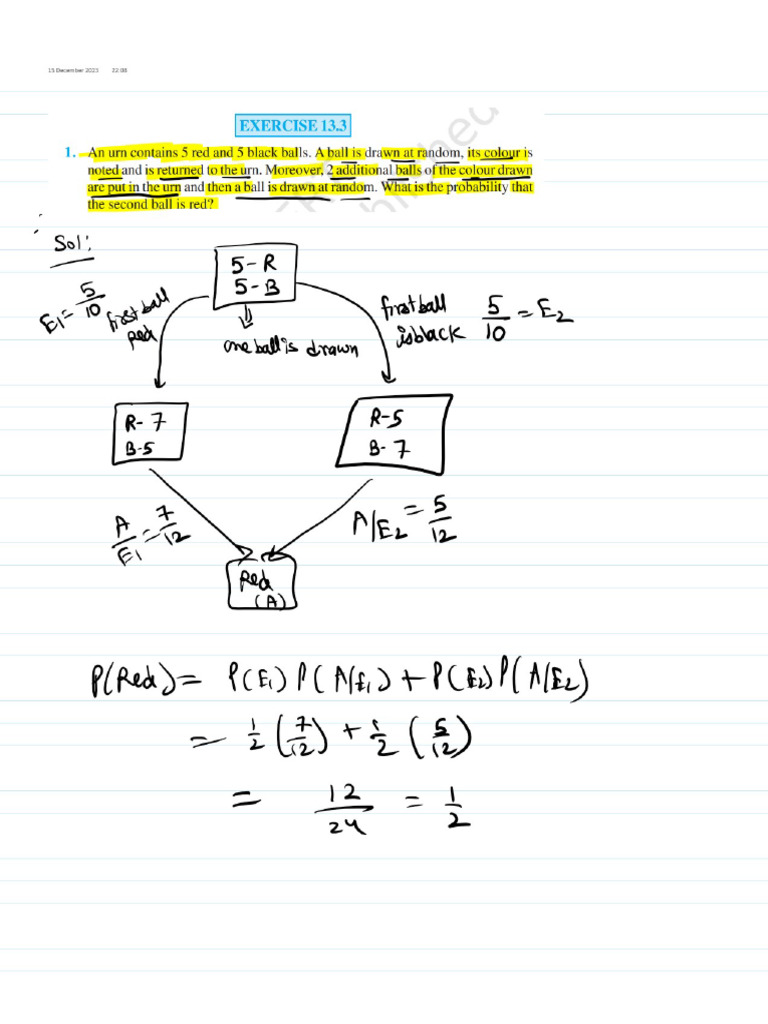 15 December 2023 22:08
EXERCISE 13.3
1. An urn contains 5 red and 5 black balls. A ball is drawn at random, its colour is
noted and is returned to the urn. Moreover, 2 additional balls of the colour drawn
are put in the urn and then a ball is drawn at random. What is the probability that
the second ball is red?
Sol:
5-R
5-B
E1= 5/10
first ball
red
one ball is drawn
first ball
is black
5/10 = E2
R-7
B-5
R-5
B-7
A/E1 = 7/12
A/E2 = 5/12
Red
(A)
P(Red) = P(E1) P(A/E1) + P(E2) P(A/E2)
= 1/2 (7/12) + 1/2 (5/12)
= 12/24 = 1/2